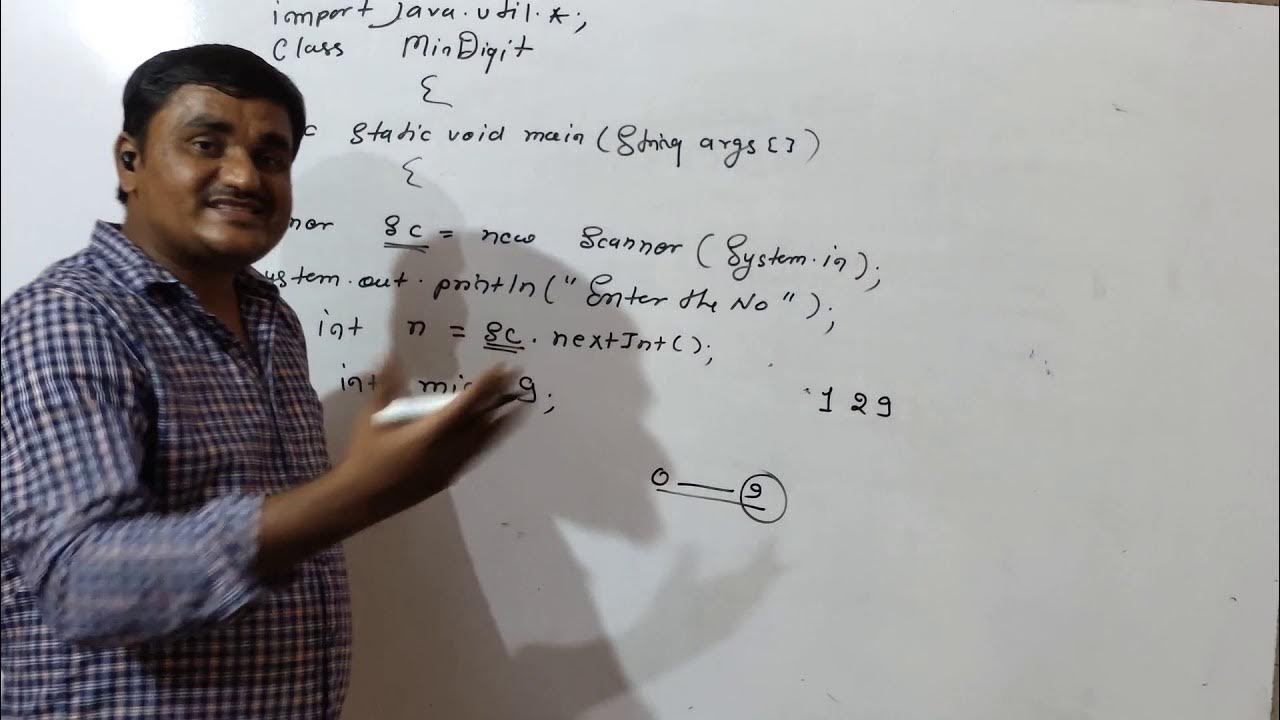 import java.util.*;
Class MinDigit
{
c static void main (String args [])
{
nor sc = new Scannor (System.in);
ystem.out.println(" Enter the No ");
int n = sc. nextInt();
int mi 9;
1 2 9
0 — 9